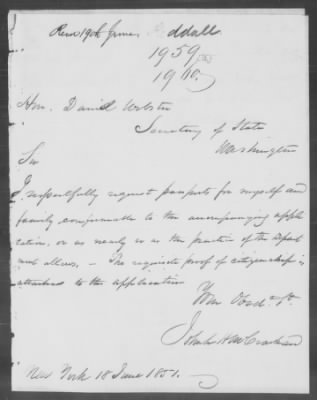 Recd 19th June
1959
1960
Hon. Daniel Webster
Secretary of State
Washington
Sir
I respectfully request passports for myself and
family conformable to the accompanying appli
cation, or as nearly so as the practice of the Depart
ment allows. – The requisite proof of citizenship is
attached to the application
Your Obedt St.
John
New York 18 June 1851.